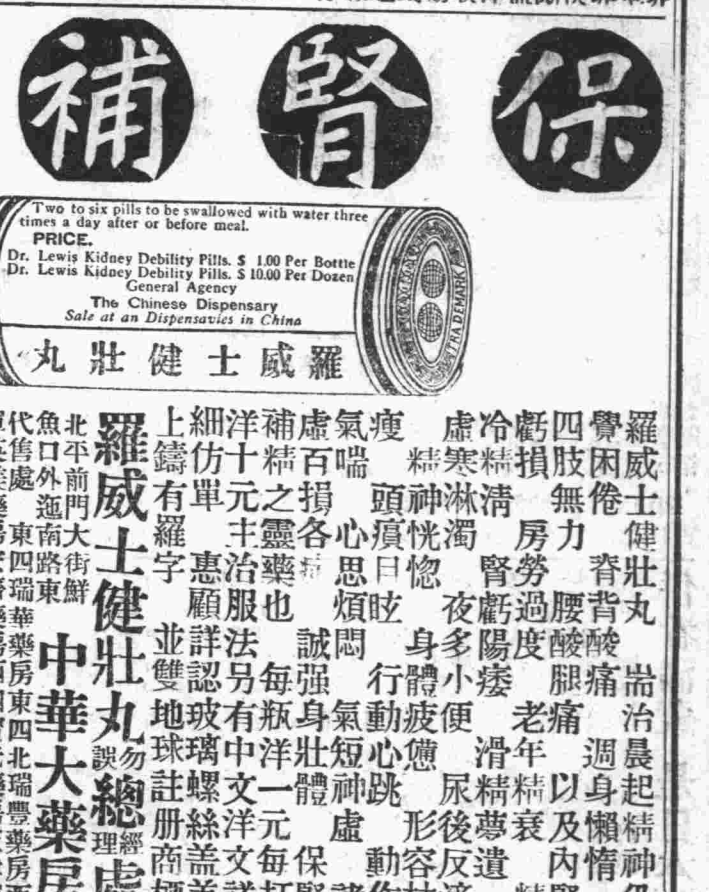 保腎補
Two to six pills to be swallowed with water three
times a day after or before meal.
PRICE.
Dr. Lewis Kidney Debility Pills. $ 1.00 Per Bottle
Dr. Lewis Kidney Debility Pills. $ 10.00 Per Dozen
General Agency
The Chinese Dispensary
Sale at an Dispensavies in China
TRADEMARK
羅威士健壯丸
羅威士健壯丸 耑治晨起精神
覺困倦 脊背酸痛 週身懶惰
四肢無力 腰酸腿痛 以及內
虧損 房勞過度 老年精衰
冷精清 腎虧陽痿 滑精夢遺
虛寒淋濁 夜多小便 尿後反
精神恍惚 身體疲憊 形容
瘦 頭瘨目眩 行動心跳 動
氣喘 心思煩悶 氣短神虛
虛百損各 誠强身壯體 保
補精之靈藥也 每瓶洋一元每
洋十元主治服法另有中文洋文
細仿單 惠顧詳認玻璃螺絲盖
上鑄有羅字 並雙地球註册商
羅威士健壯丸總
勿誤
經理
北平前門大街鮮
魚口外迤南路東
中華大藥房
代售處 東四瑞華藥房東四北瑞豐藥房